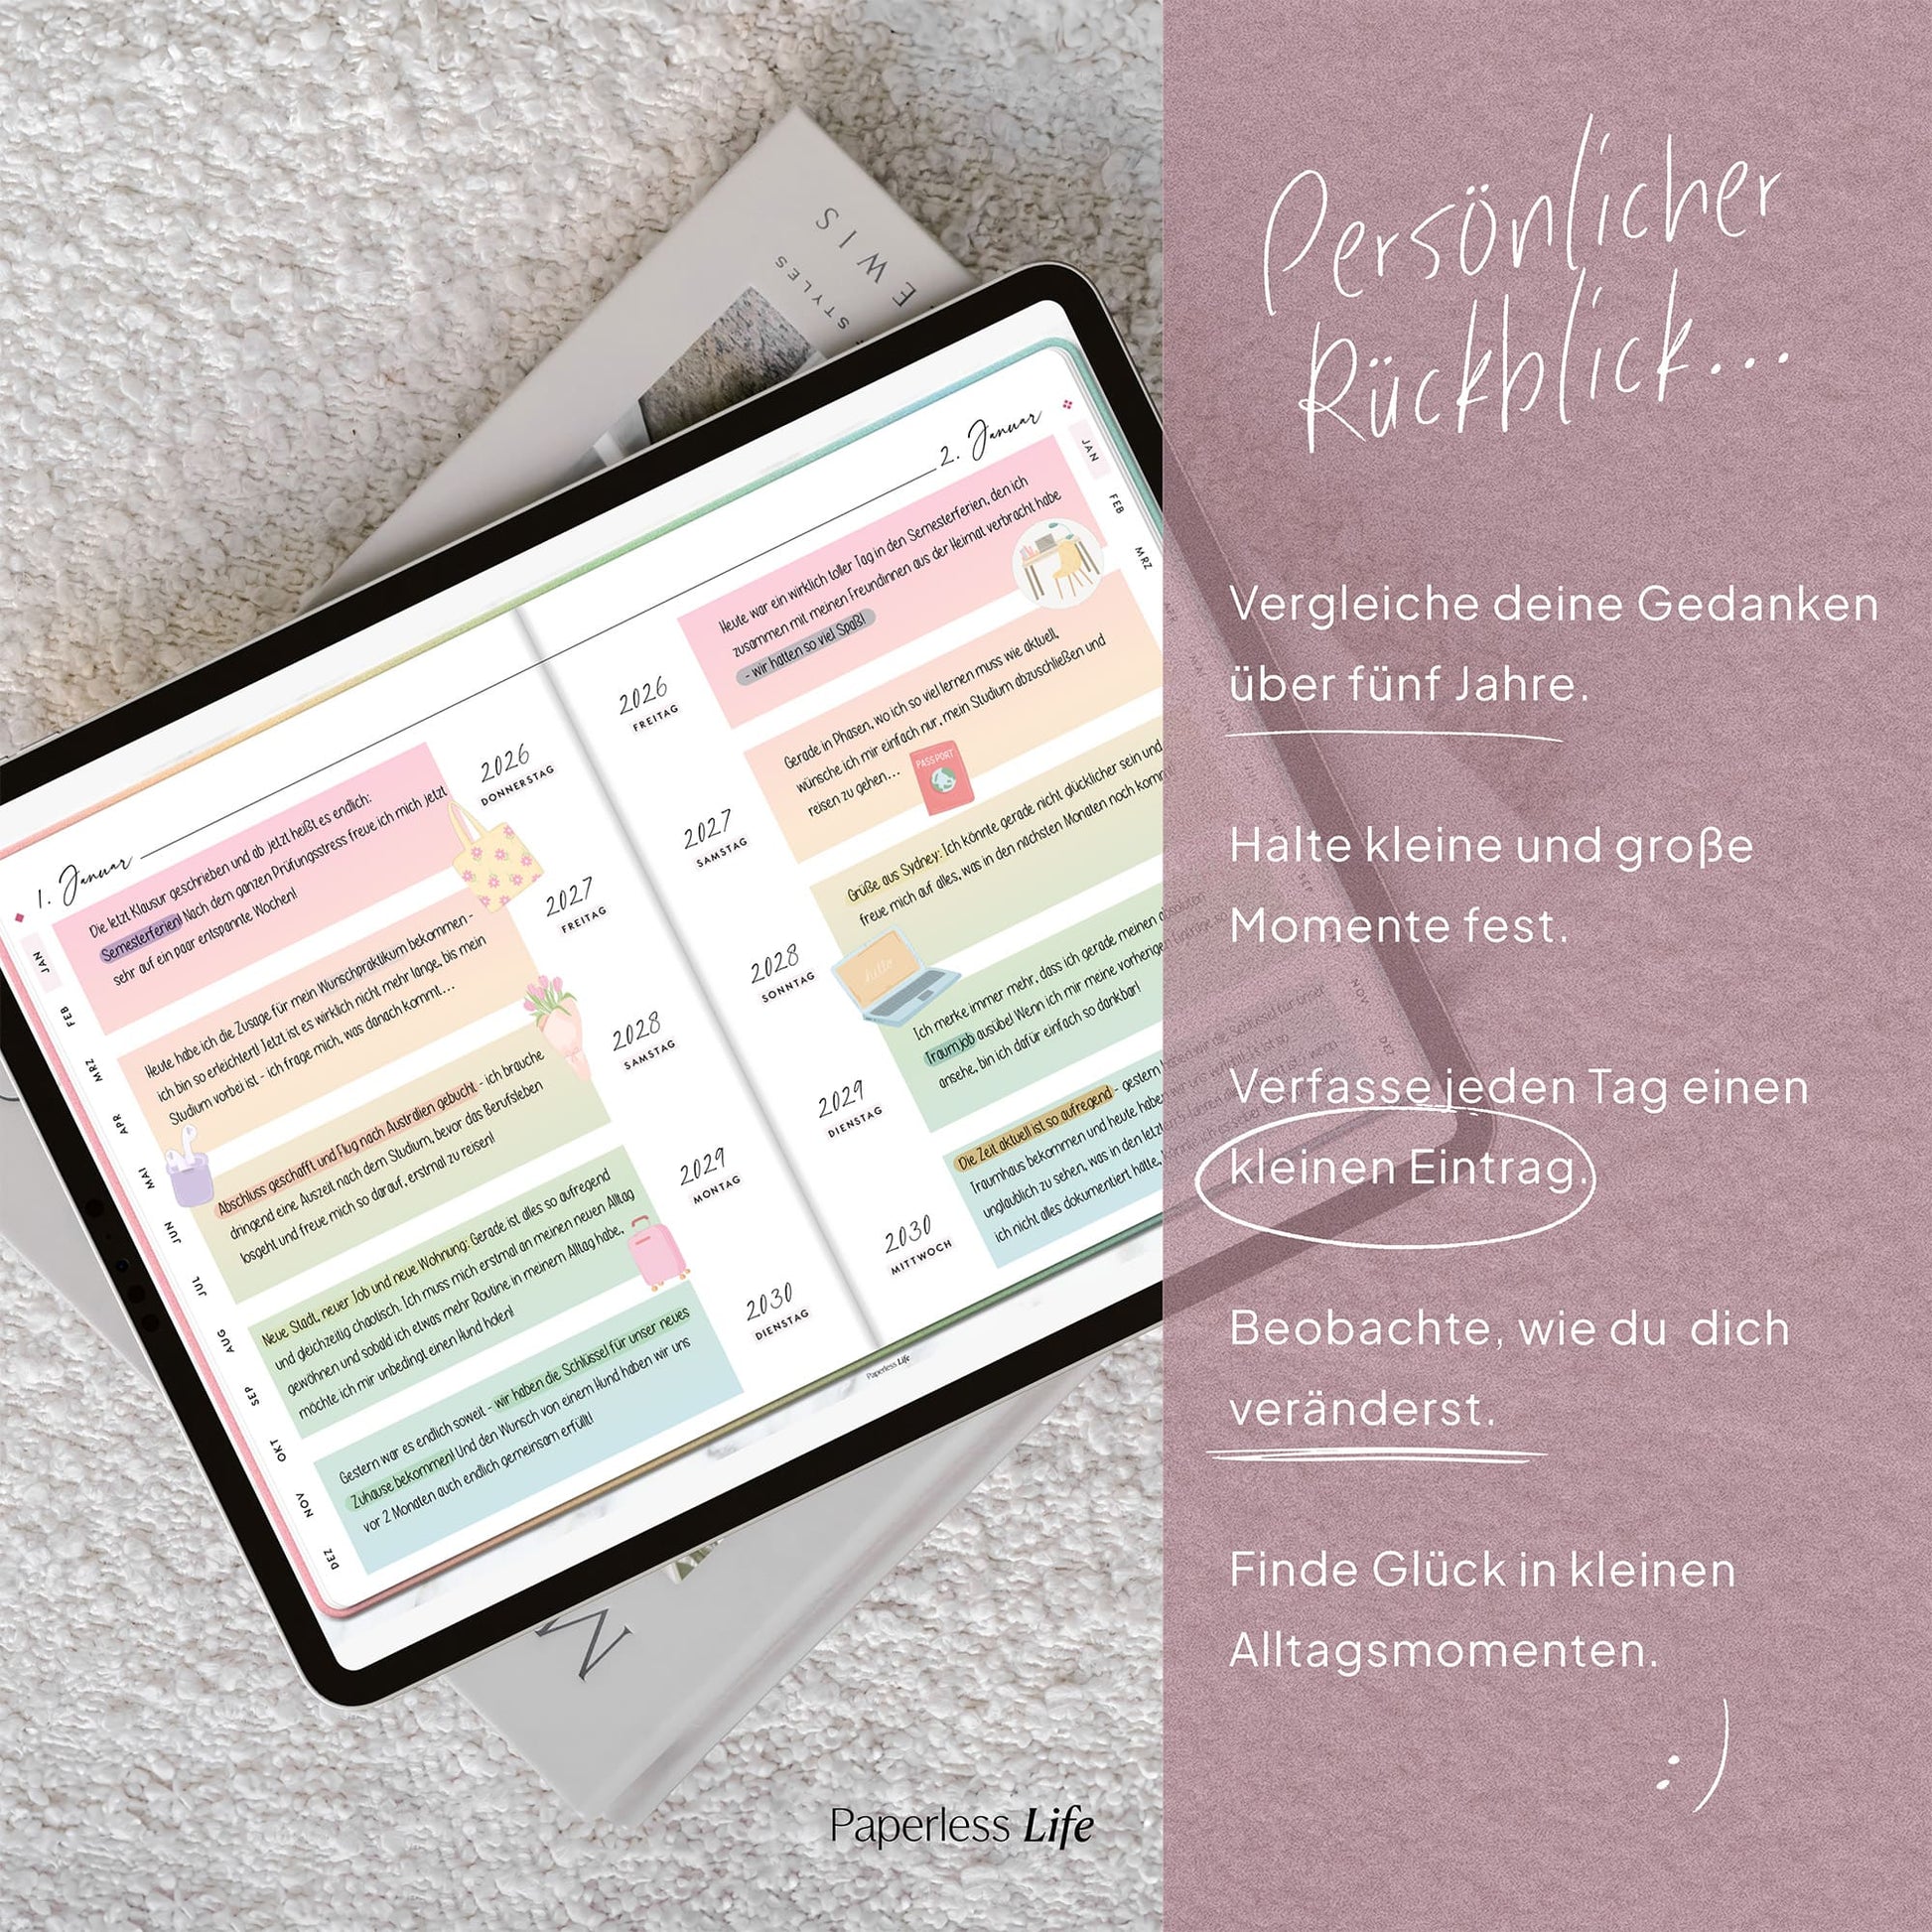 EWIS
STYLES
1. Januar
JAN
FEB
MRZ
APR
MAI
JUN
JUL
AUG
SEP
OKT
NOV
DEZ
Die letzt Klausur geschrieben und ab jetzt heißt es endlich:
Semesterferien! Nach dem ganzen Prüfungsstress freue ich mich jetzt
sehr auf ein paar entspannte Wochen!
2026
DONNERSTAG
Heute habe ich die Zusage für mein Wunschpraktikum bekommen -
ich bin so erleichtert! Jetzt ist es wirklich nicht mehr lange, bis mein
Studium vorbei ist - ich frage mich, was danach kommt...
2027
FREITAG
Abschluss geschafft und Flug nach Australien gebucht - ich brauche
dringend eine Auszeit nach dem Studium, bevor das Berufsleben
losgeht und freue mich so darauf, erstmal zu reisen!
2028
SAMSTAG
Neue Stadt, neuer Job und neue Wohnung: Gerade ist alles so aufregend
und gleichzeitig chaotisch. Ich muss mich erstmal an meinen neuen Alltag
gewöhnen und sobald ich etwas mehr Routine in meinem Alltag habe,
möchte ich mir unbedingt einen Hund holen!
2029
MONTAG
Gestern war es endlich soweit - wir haben die Schlüssel für unser neues
Zuhause bekommen! Und den Wunsch von einem Hund haben wir uns
vor 2 Monaten auch endlich gemeinsam erfüllt!
2030
DIENSTAG
2. Januar
JAN
FEB
MRZ
SEP
NOV
DEZ
2026
FREITAG
Heute war ein wirklich toller Tag in den Semesterferien, den ich
zusammen mit meinen Freundinnen aus der Heimat verbracht habe
- wir hatten so viel Spaß!
2027
SAMSTAG
Gerade in Phasen, wo ich so viel lernen muss wie aktuell,
wünsche ich mir einfach nur, mein Studium abzuschließen und
reisen zu gehen...
PASSPORT
2028
SONNTAG
Grüße aus Sydney: Ich könnte gerade nicht glücklicher sein und
freue mich auf alles, was in den nächsten Monaten noch komm
hello
2029
DIENSTAG
Ich merke immer mehr, dass ich gerade meinen absoluten
Traumjob ausübe! Wenn ich mir meine vorherigen
ansehe, bin ich dafür einfach so dankbar!
2030
MITTWOCH
Die Zeit aktuell ist so aufregend - gestern haben wir die Schlüssel für unser
Traumhaus bekommen und heute habe
unglaublich zu sehen, was in den letzten
ich nicht alles dokumentiert hätte,
Paperless Life
M
Paperless Life
Persönlicher
Rückblick...
Vergleiche deine Gedanken
über fünf Jahre.
Halte kleine und große
Momente fest.
Verfasse jeden Tag einen
kleinen Eintrag.
Beobachte, wie du dich
veränderst.
Finde Glück in kleinen
Alltagsmomenten.
:)